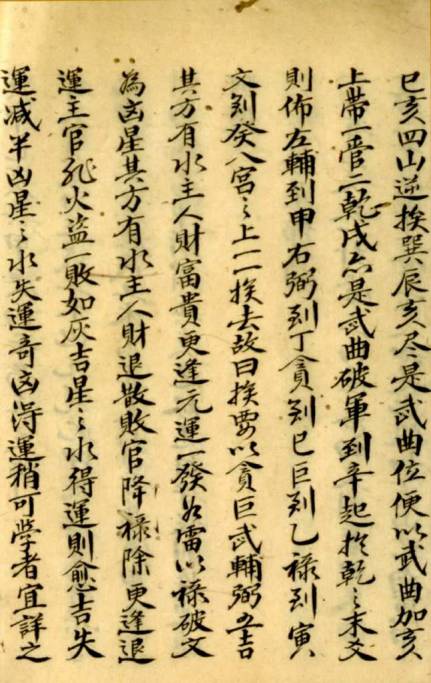 巳亥四山逆挨巽辰亥尽是武曲位便以武曲加亥
上帶一管二乾戌亦是武曲破軍到辛起於乾之末爻
則佈左輔到甲右弼到丁貪到巳巨到乙禄到寅
文到癸八宮之上一一挨去故曰挨要以貪巨武輔弼五吉
其方有水主人財富貴更逢元運一發如雷以禄破文
為凶星其方有水主人財退散敗官降禄除更逢退
運主官非火盗一敗如灰吉星之水得運則愈吉失
運减半凶星之水失運奇凶得運稍可學者宜詳之